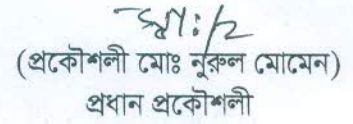 স্বাঃ/২
(প্রকৌশলী মোঃ নূরুল মোমেন)
প্রধান প্রকৌশলী